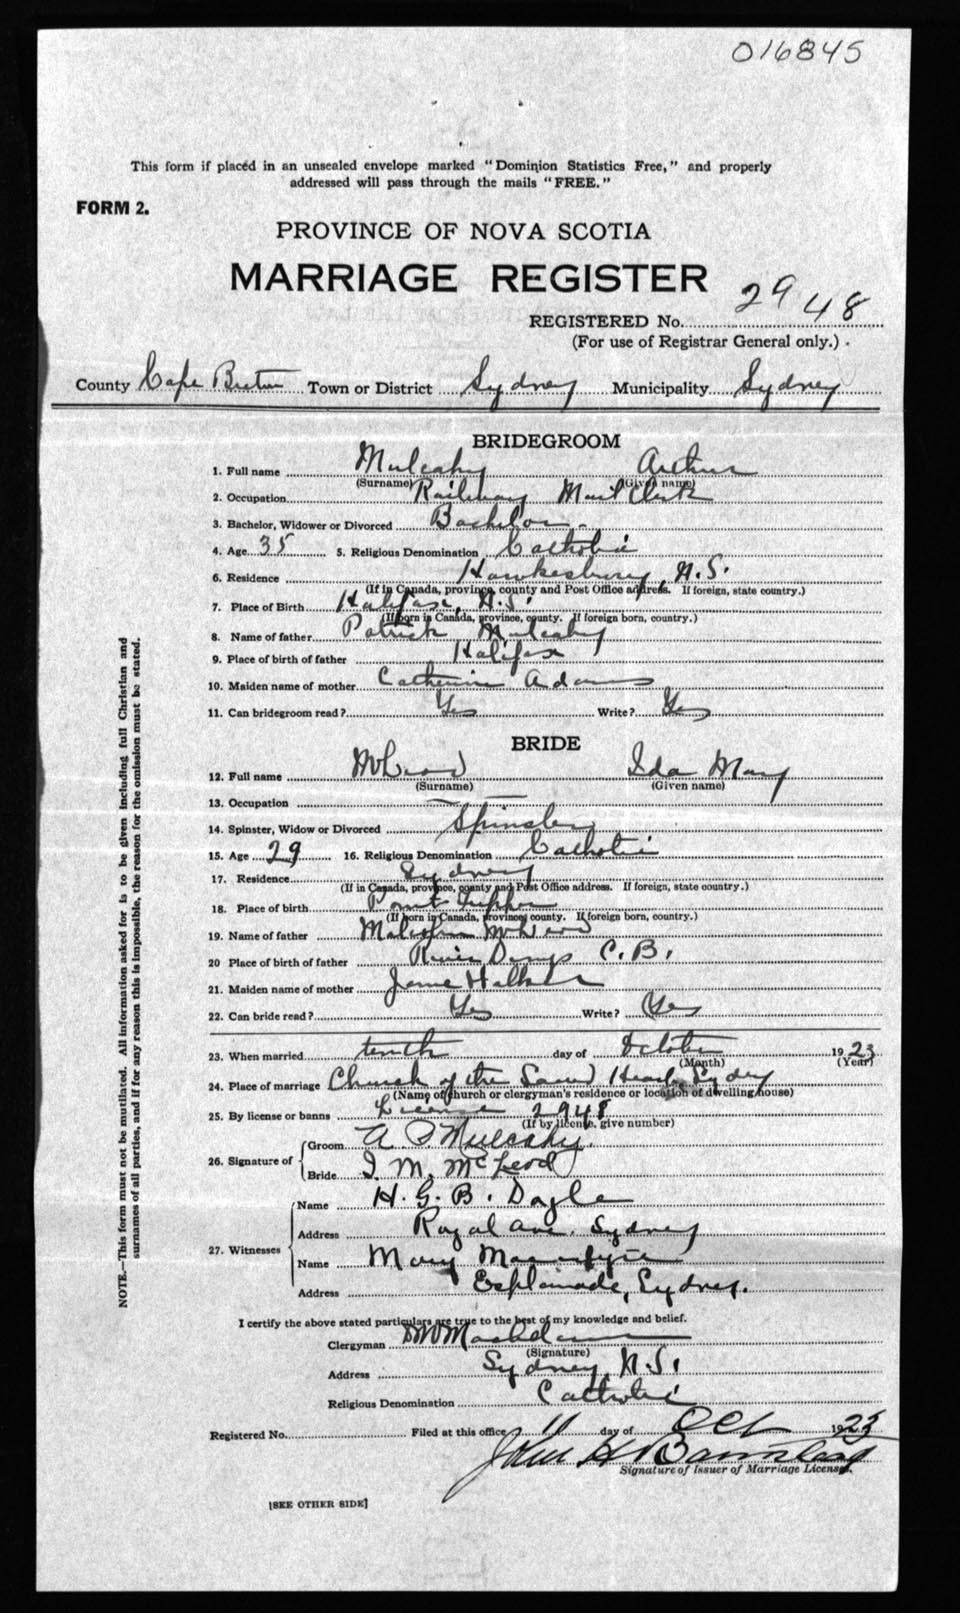 016845
This form if placed in an unsealed envelope marked "Dominion Statistics Free," and properly
addressed will pass through the mails "FREE."
FORM 2.
PROVINCE OF NOVA SCOTIA
MARRIAGE REGISTER
REGISTERED No. 2948
(For use of Registrar General only.)
County Cape Breton Town or District Sydney Municipality Sydney
BRIDEGROOM
1. Full name Mulcahy Arthur
(Surname) (Given name)
2. Occupation Railway Mail Clerk
3. Bachelor, Widower or Divorced Bachelor.
4. Age 35 5. Religious Denomination Catholic
6. Residence Hawkesbury, N.S.
(If in Canada, province, county and Post Office address. If foreign, state country.)
7. Place of Birth Halifax, N.S.
(If born in Canada, province, county. If foreign born, country.)
8. Name of father Patrick Mulcahy
9. Place of birth of father Halifax
10. Maiden name of mother Catherine Adams
11. Can bridegroom read? Yes Write? Yes
BRIDE
12. Full name McLeod Ida May
(Surname) (Given name)
13. Occupation
14. Spinster, Widow or Divorced Spinster
15. Age 29 16. Religious Denomination Catholic
17. Residence Sydney
(If in Canada, province, county and Post Office address. If foreign, state country.)
18. Place of birth Point Tupper
(If born in Canada, province, county. If foreign born, country.)
19. Name of father Malcolm McLeod
20 Place of birth of father River Denys C.B.
21. Maiden name of mother Jane
22. Can bride read? Yes Write? Yes
23. When married tenth day of October 1923
(Month) (Year)
24. Place of marriage Church of the Sacred Heart, Sydney
(Name of church or clergyman's residence or location of dwelling house)
25. By license or banns License 2948
(If by license, give number)
26. Signature of Groom A Mulcahy.
Bride I. M. McLeod
27. Witnesses Name H. G. B. Doyle
Address Royal Ave. Sydney
Name Mary Macintyre
Address Esplanade, Sydney.
I certify the above stated particulars are true to the best of my knowledge and belief.
Clergyman
(Signature)
Address Sydney, N.S.
Religious Denomination Catholic
Registered No. Filed at this office 11 day of Oct 1923
John H
Signature of Issuer of Marriage Licenses.
[SEE OTHER SIDE]
NOTE.—This form must not be mutilated. All information asked for is to be given including full Christian and
surnames of all parties, and if for any reason this is impossible, the reason for the omission must be stated.